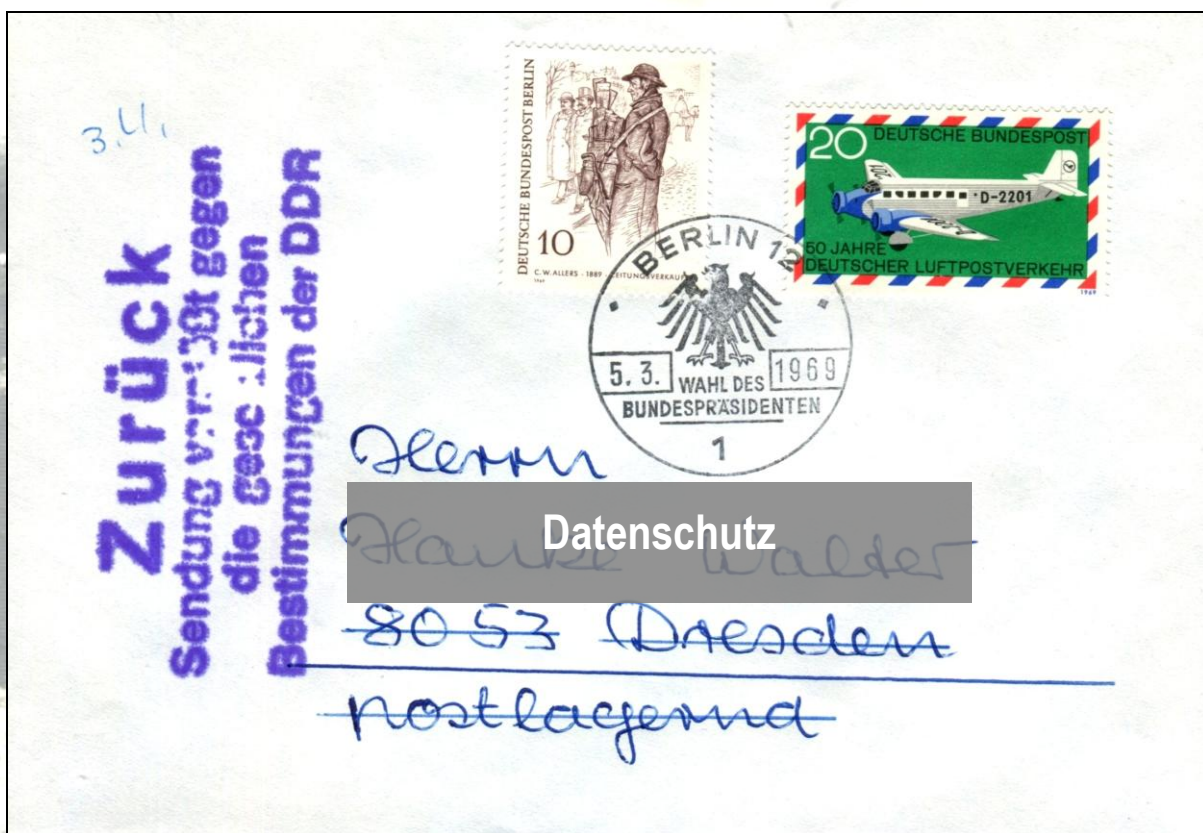 3.4.
Zurück
Sendung gegen
die
Bestimmungen der DDR
DEUTSCHE BUNDESPOST BERLIN
10
C.W.ALLERS - 1889 -
1969
20 DEUTSCHE BUNDESPOST
D-2201
50 JAHRE
DEUTSCHER LUFTPOSTVERKEHR
1969
BERLIN 12
5.3. 1969
WAHL DES
BUNDESPRÄSIDENTEN
1
Herrn
Datenschutz
8053 Dresden
postlagernd